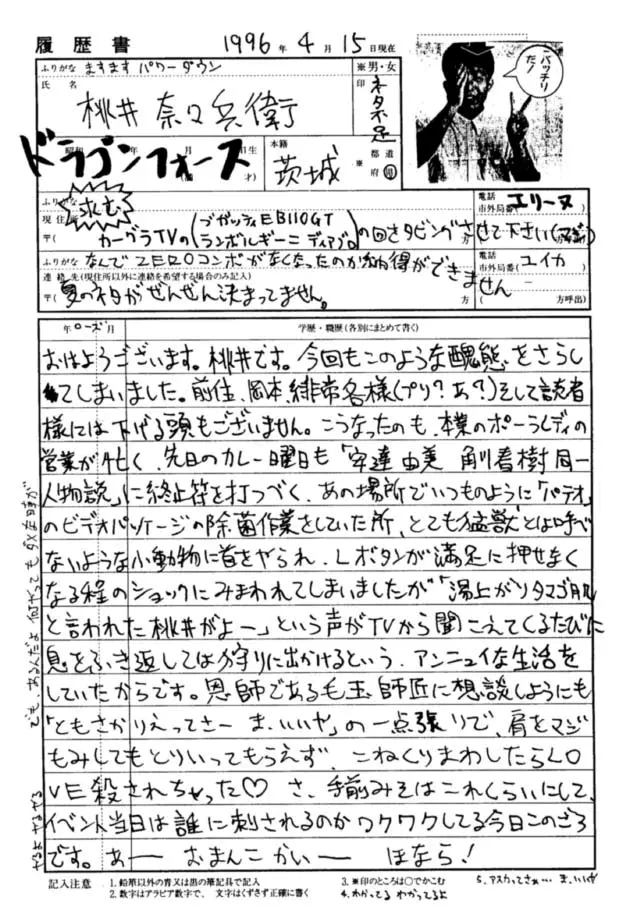 履歴書 1996年4月15日現在
ふりがな ますます パワーダウン ※男・女
氏名 桃井 奈々兵衛 印 ネタ不足
バッチリだ!
ドラゴンフォース 本籍 茨城 ※都道府県
ふりがな 求む 電話 エリーヌ
現住所 〒( カーグラTVの(ブガッティEB110GT ランボルギーニ ディアブロ)の回さダビングさせて下さい(マジ) 市外局番( )
ふりがな なんでZEROコンボがなくなったのか納得ができません 電話 ユイカ
連絡先(現住所以外に連絡を希望する場合のみ記入) 市外局番( )
〒( 夏のネタがぜんぜん決まってません。 方 ( 方呼出)
年 ローズ 月 学歴・職歴(各別にまとめて書く)
おはようございます。桃井です。今回もこのような醜態をさらし
てしまいました。前住、岡本、緋常各様(プリ?あ?)そして読者
様には下げる頭もございません。こうなったのも、本業のポーラレディの
営業が忙く、先日のカレー日曜日も「安達由美 角川春樹 同一
人物説」に終止符を打つべく、あの場所でいつものように「パテオ」
のビデオパッケージの除菌作業をしていた所、とても猛獣とは呼べ
ないような小動物に首をやられ、Lボタンが満足に押せなく
なる程のショックにみまわれてしまいましたが「湯上がりタマゴ肌
と言われた桃井がよー」という声がTVから聞こえてくるたびに
息をふき返しては狩りに出かけるという、アンニュイな生活を
していたからです。恩師である毛玉師匠に想談しようにも
「ともさかりえってさー ま、いいや」の一点張りで、肩をマジ
もみしてもとりいってもらえず、こねくりまわしたらLO
VE殺されちゃった♡ さ、手前みそはこれくらいにして、
イベント当日は誰に刺されるのかワクワクしてる今日このごろ
です。あー おまんこ かいー ほなら!
でも、あるんだよ 何がっても
やるよ やるやる
記入注意 1. 鉛筆以外の青又は黒の筆記具で記入 3. ※印のところは○でかこむ 5. アスカってさぁ… ま、いいや
2. 数字はアラビア数字で、文字はくずさず正確に書く 4. わかってる わかってるよ